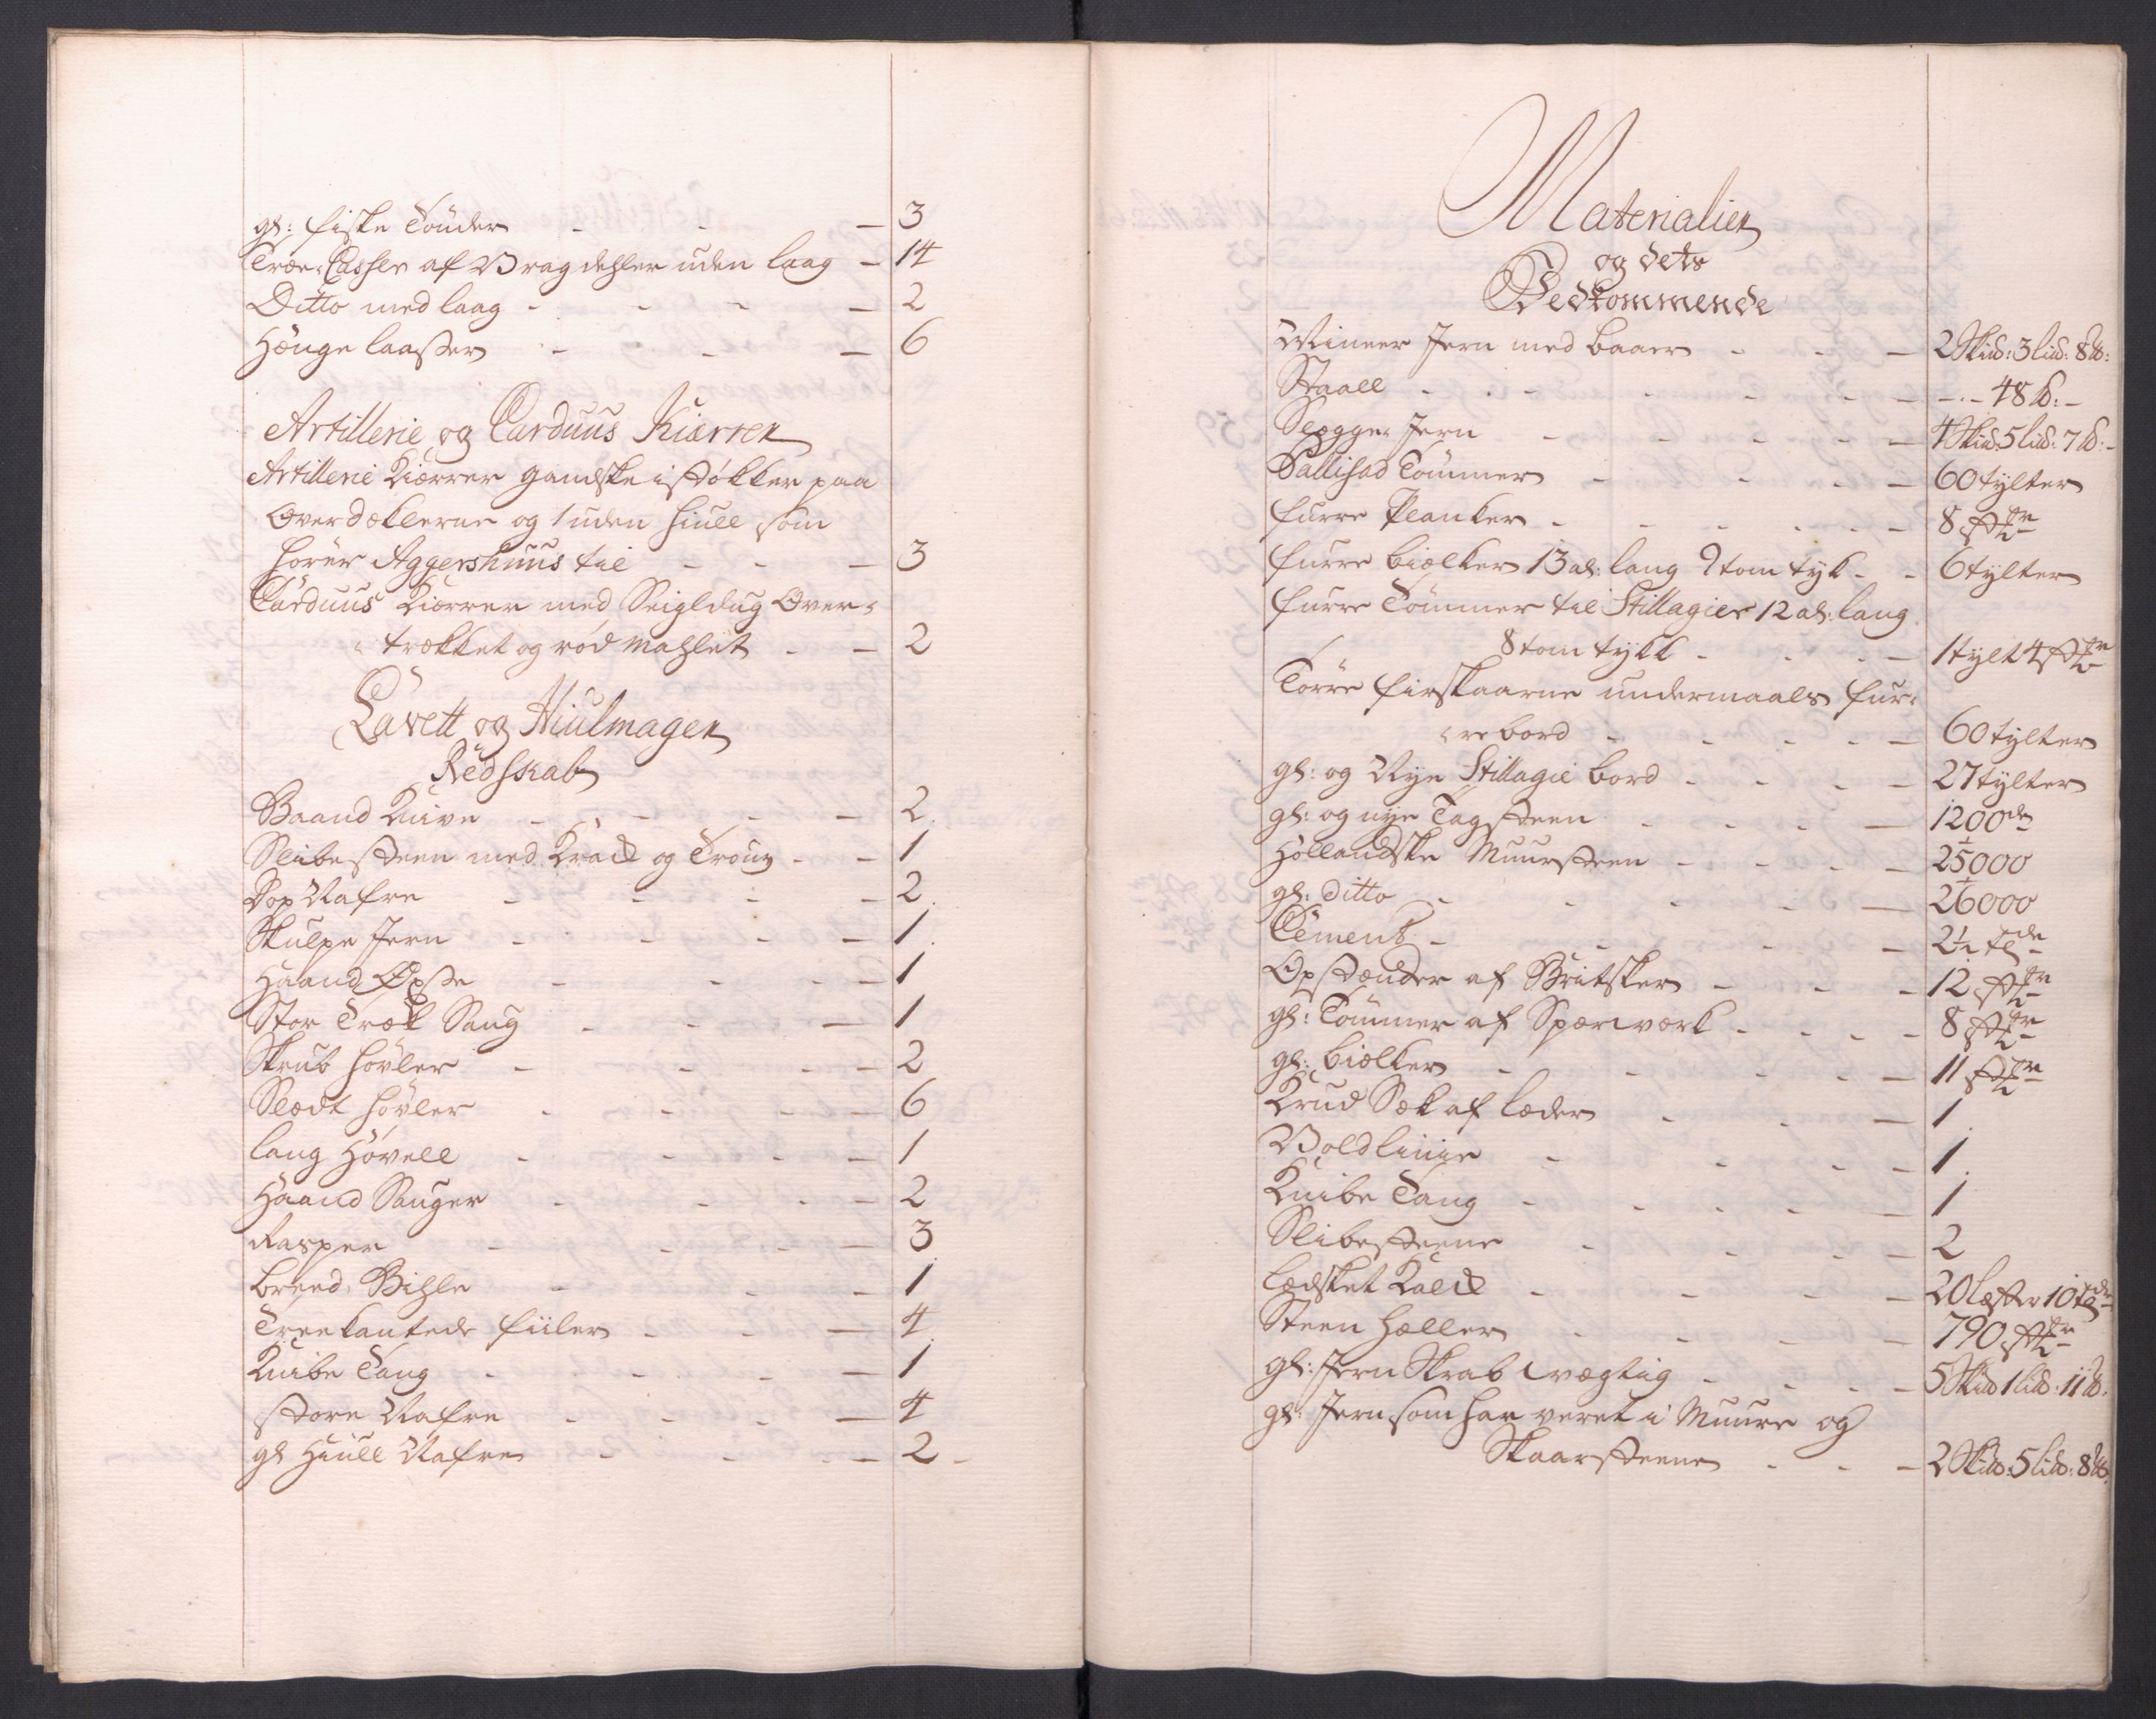 gl: fiske Tönder - - - 3
Træe Casser af Vrag dehler uden laag - 14
Ditto med laag - - - - 2
Hænge laasser - - - 6
Artillerie og Carduus Kiærrer
Artillerie Kiærrer gandske i støkker paa
Overdæklerne og 1 uden hiull som
hører Aggershuus til - - - 3
Carduus Kiærrer med Seigldug Over-
trækket og rød mahlet - - 2
Lavett og Hiulmager
Redskab
Baand Knive - - - - 2
Slibesteen med Kracd og Troug - - 1
Dop Nafre - - - - 2
Skulpe Jern - - - - 1
Haand Øxse - - - - 1
Stor Træk Saug - - - 1
Skrub høvler - - - - 2
Slædt høvler - - - - 6
lang Høvell - - - - 1
Haand Sauger - - - - 2
Rasper - - - - 3
breed Bihle - - - - 1
Treekantede fiiler - - - 4
Knibe Tang - - - - 1
store Nafre - - - - 4
gl Hiull Nafre - - - - 2
Materialier
og dets
Vedkommende
Mineer Jern med baaer - - - 2 Skud: 3 liud: 8 lb:
Staall - - - - - - 48 lb: -
Slegge Jern - - - - - 4 Skud: 5 liud: 7 lb: -
Pallisad Tömmer - - - - 60 tylter
furre Planker - - - - - 8 stkr
furre bielker 13 al: lang 9 tom tyk - - 6 tylter
furre Tømmer til Stillagier 12 al: lang
8 tom tykk - - - - 1 tylt 4 stkr
Torre firskaarne undermaals fur-
re bord - - - - - 60 tylter
gl: og Nye Stillagie bord - - - - 27 tylter
gl: og nye Tagsteen - - - - 1200de
Hollandske Muursteen - - - - 25000
gl: ditto - - - - - 26000
Cement - - - - 2½ tde
Opstænder af Britsker - - - 12 stkr
gl: Tømmer af Spærwærk - - - - 8 stkr
gl: bielker - - - - - 11 stkr
Krud Sæk af læder - - - 1
Voldlinie - - - - 1
Knibe Tang - - - - - 1
Slibesteene - - - - 2
lædsket Kalck - - - - 20 læster 10 tdr
Steen Heller - - - - 790 stkr
gl: Jern Skrab wægtig - - - - 5 Skud 1 liud: 11 lb:
gl: Jern som har veret i Muure og
Skaarsteene - - - 2 Skud: 5 liud: 8 lb: